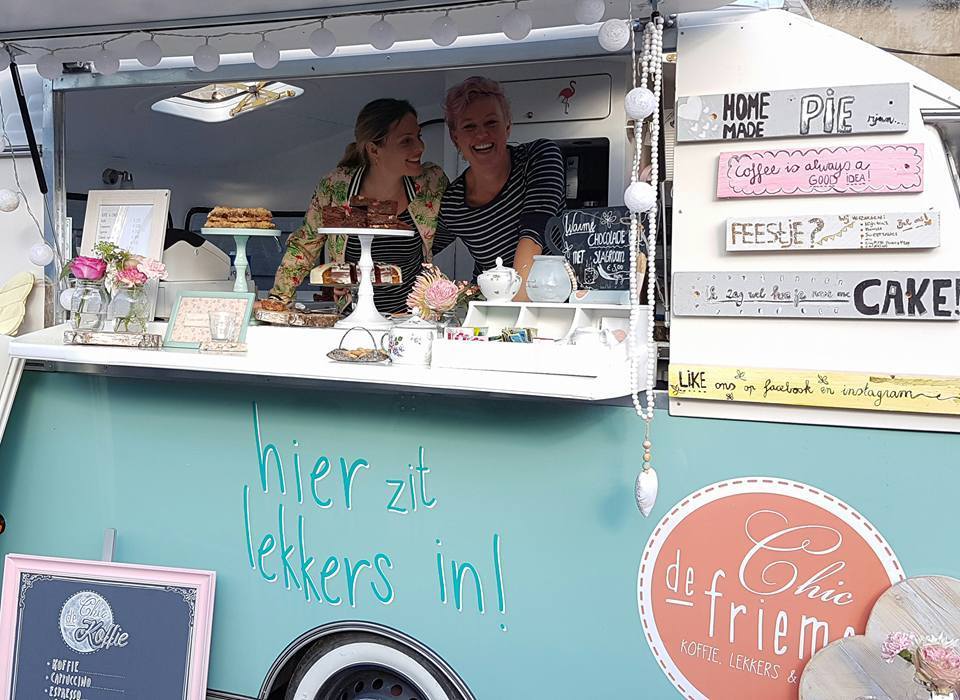 HOME MADE PIE
Coffee is always a
GOOD IDEA!
FEESTJE?
Ik zag wel hoe je naar me CAKE!
LIKE ons op facebook en instagram
Warme
CHOCOLADE
MET SLAGROOM
hier zit
lekkers in!
Chic
de frieme
KOFFIE, LEKKERS &
Koffie
• KOFFIE
• CAPPUCCINO
• ESPRESSO